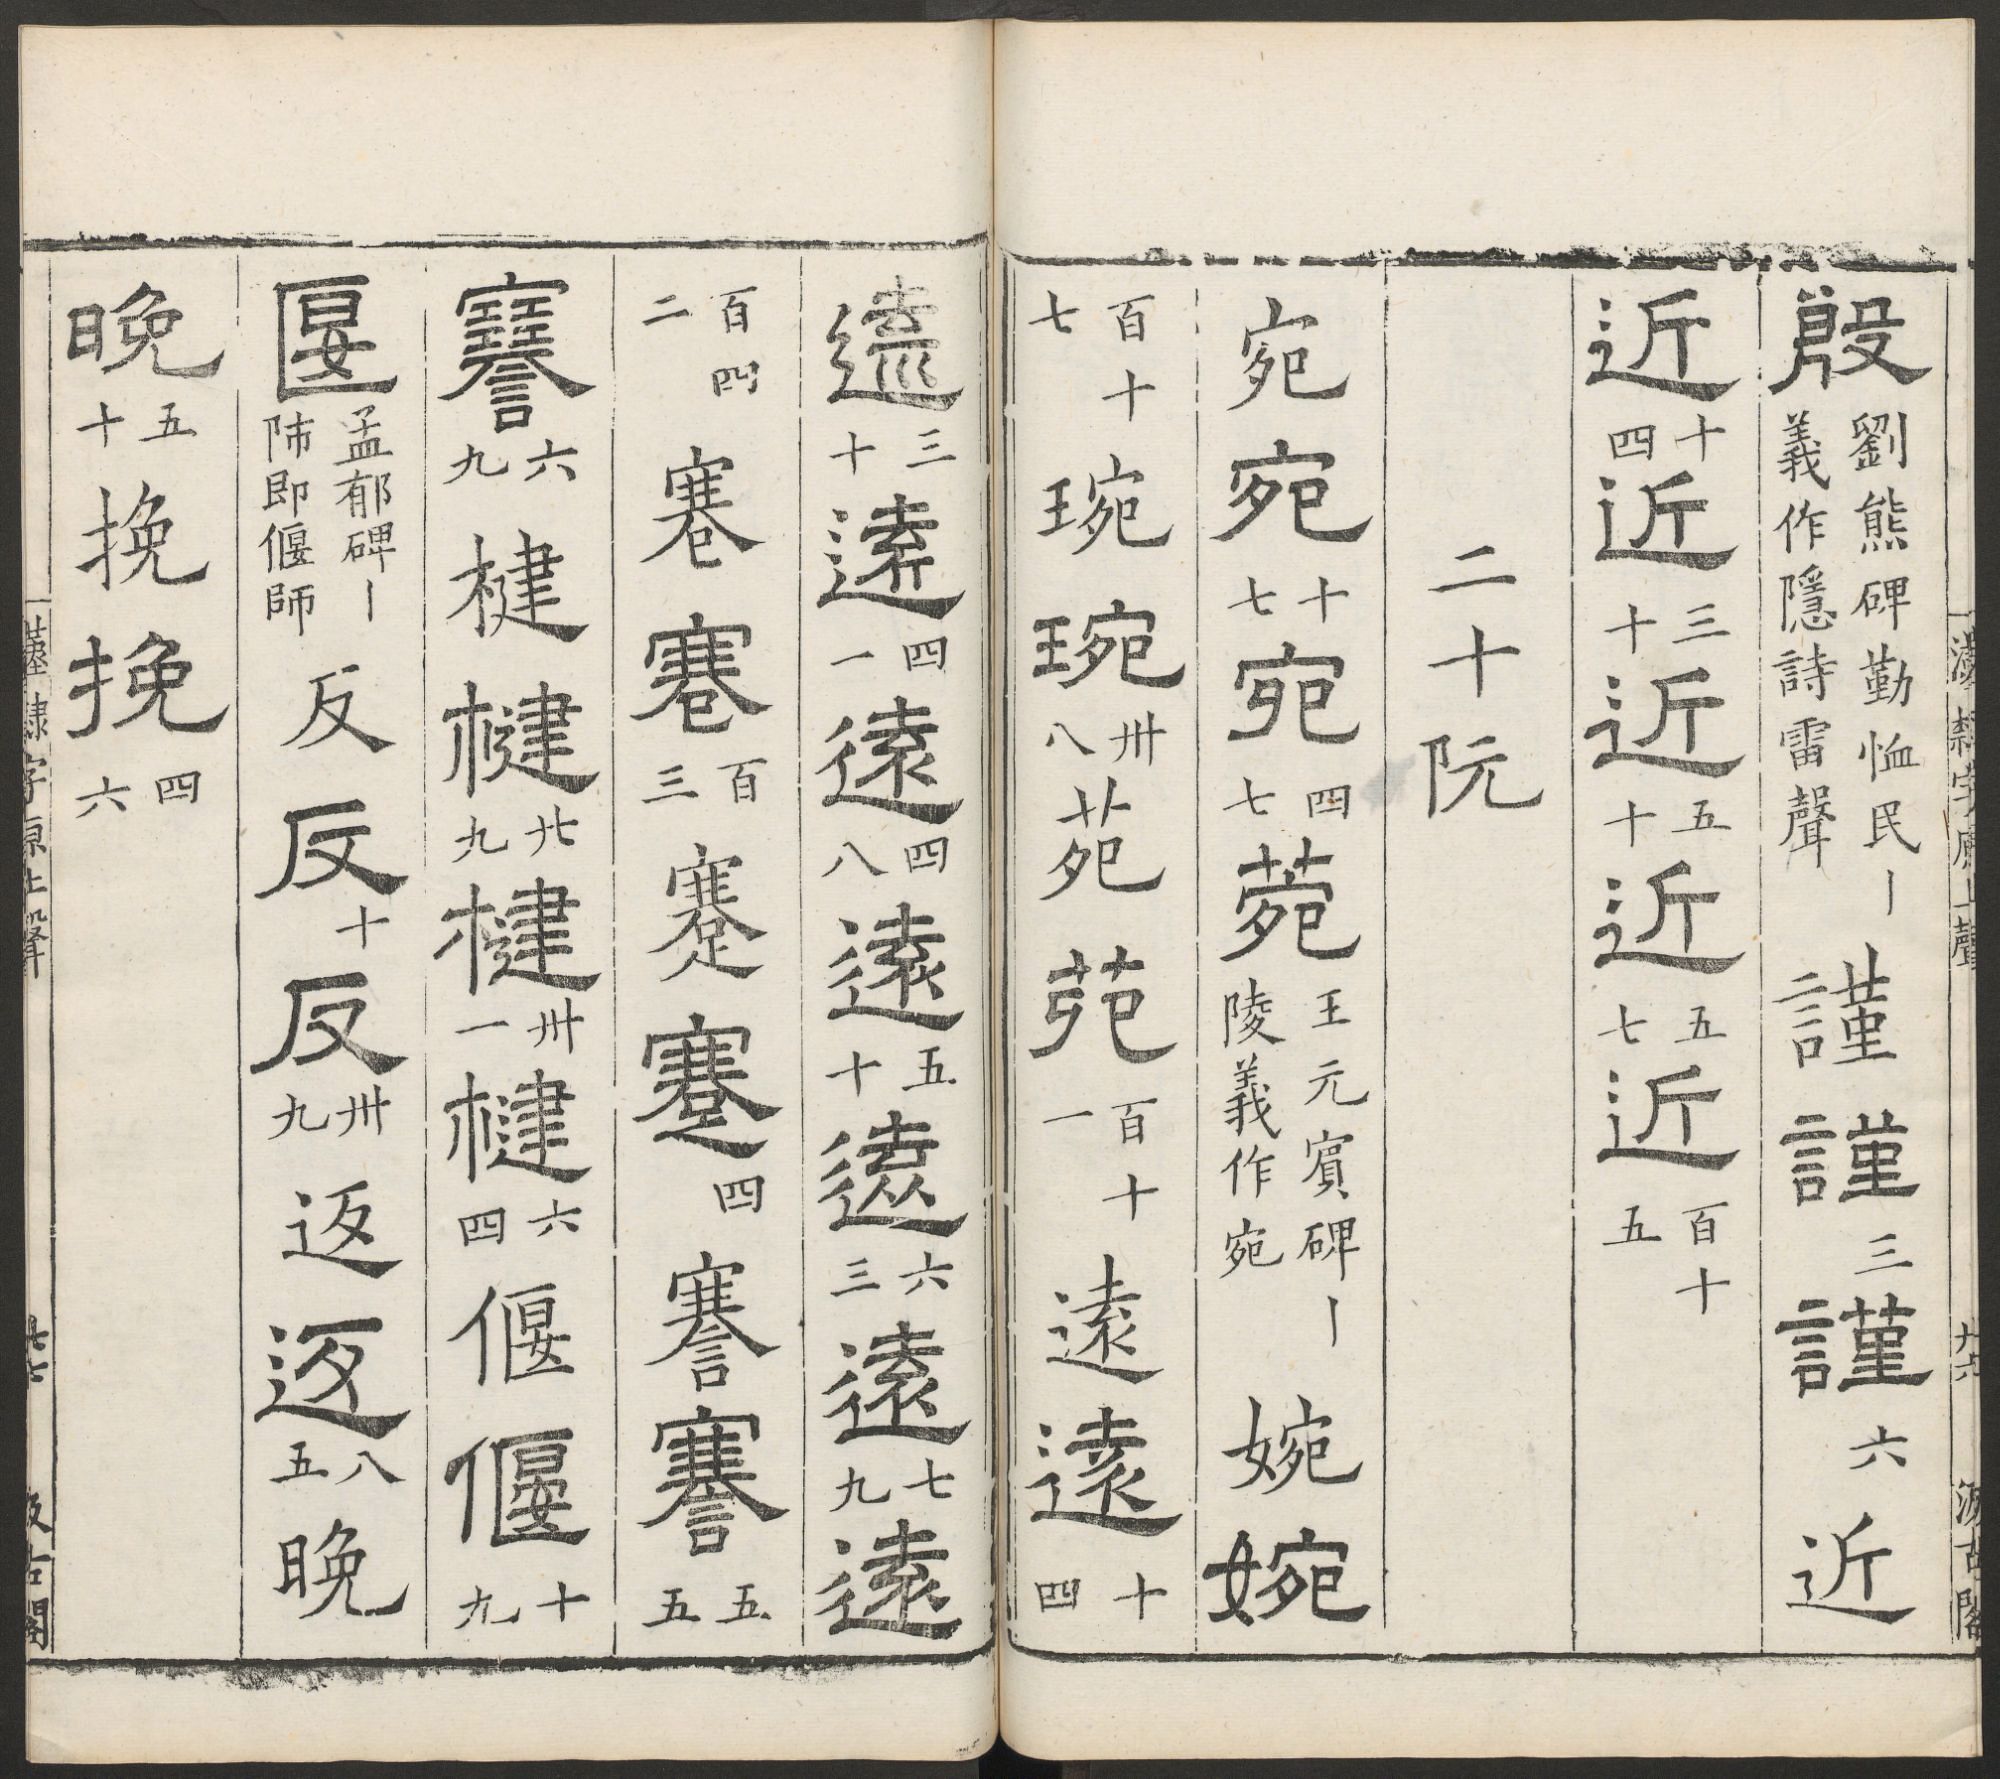 殷劉熊碑勤恤民丨義作隱詩雷聲謹謹三謹六近
近十四近三十近五十近五七近百十五
二十阮
宛宛十七宛四七菀王元賓碑丨陵義作宛婉婉
百十七琬琬卅八苑苑百十一遠遠十四
遠三十遠四一遠四八遠五十遠六三遠七九遠
百四二褰褰百三蹇蹇四謇謇五五
謇六九楗楗廿九楗卅一楗六四偃偃十九
匽孟郁碑丨陠即偃師反反十反卅九返返八五晚
晚五十挽挽四六
漢隸字原上聲 廿六 汲古閣
漢隸字原上聲 廿七 汲古閣